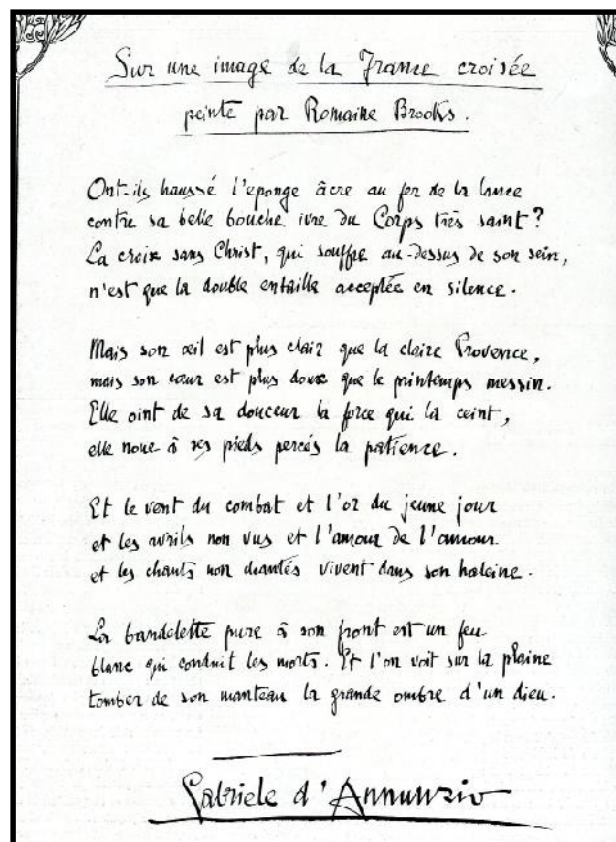 Sur une image de la France croisée
peinte par Romaine Brooks.
Ont-ils haussé l'eponge âcre au fer de la lance
contre sa belle bouche ivre du Corps très saint?
La croix sans Christ, qui souffre au-dessus de son sein,
n'est que la double entaille acceptée en silence.
Mais son œil est plus clair que la claire Provence,
mais son cœur est plus doux que le printemps messin.
Elle oint de sa douceur la force qui la ceint,
elle noue à ses pieds percés la patience.
Et le vent du combat et l'or du jeune jour
et les avrils non vus et l'amour de l'amour
et les chants non chantés vivent dans son haleine.
La bandelette pure à son front est un feu
blanc qui conduit les morts. Et l'on voit sur la plaine
tomber de son manteau la grande ombre d'un dieu.
Gabriele d'Annunzio